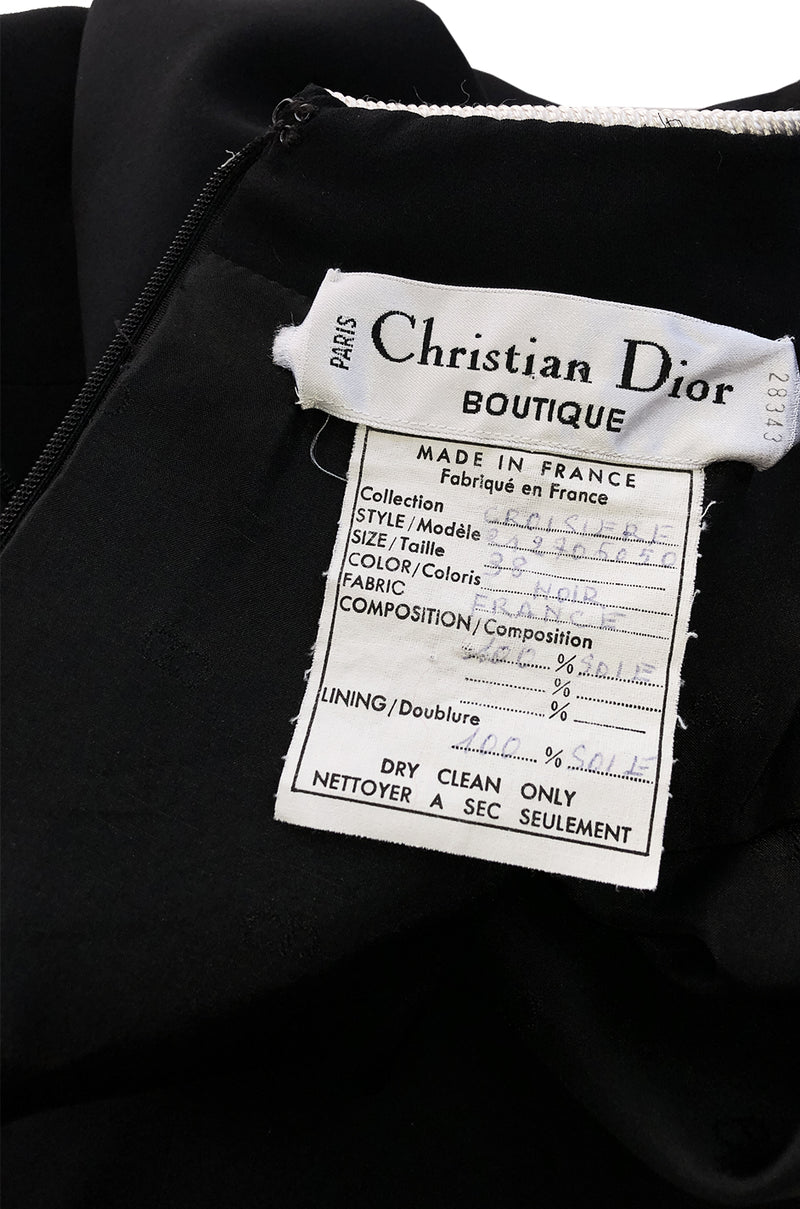 PARIS
Christian Dior
BOUTIQUE
28343
MADE IN FRANCE
Fabriqué en France
Collection CROISIERE
STYLE/Modèle
SIZE/Taille 38
COLOR/Coloris NOIR
FABRIC FRANCE
COMPOSITION/Composition
100 % SOIE
%
%
LINING/Doublure
100 % SOIE
DRY CLEAN ONLY
NETTOYER A SEC SEULEMENT